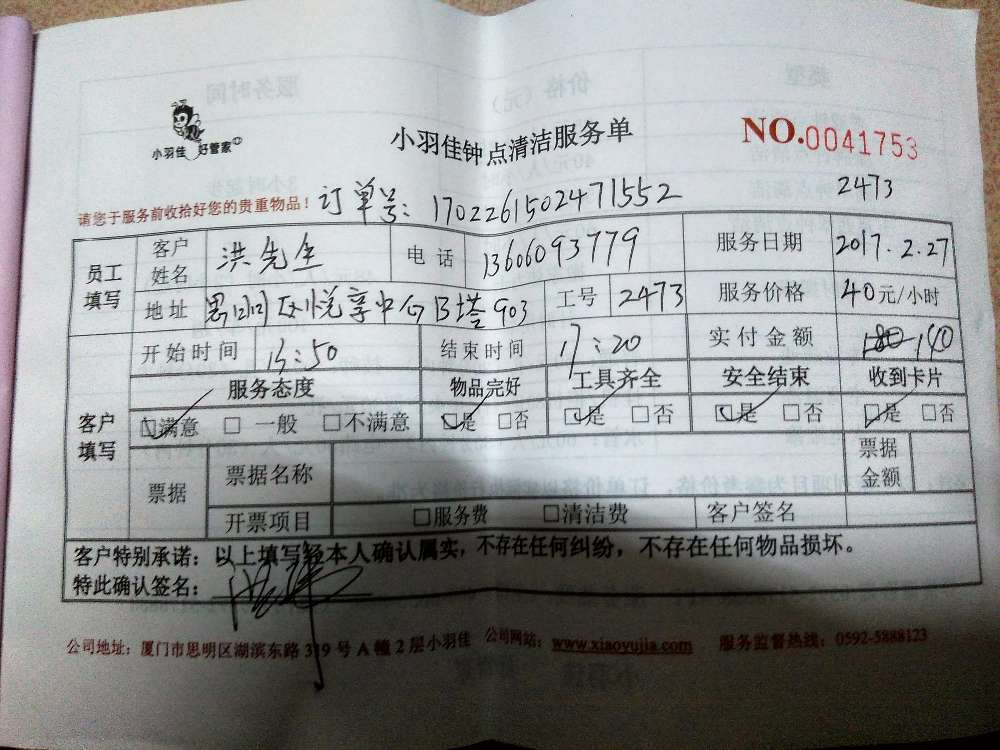 小羽佳 好管家
小羽佳钟点清洁服务单
NO.0041753
请您于服务前收拾好您的贵重物品！ 订单号：1702261502471552 2473
员工填写 客户姓名 洪先生 电话 13606093779 服务日期 2017.2.27
地址 思明区悦享中心B塔903 工号 2473 服务价格 40元/小时
客户填写 开始时间 13:50 结束时间 17:20 实付金额 140
服务态度 物品完好 工具齐全 安全结束 收到卡片
☑满意 □一般 □不满意 ☑是 □否 ☑是 □否 ☑是 □否 ☑是 □否
票据 票据名称 票据金额
开票项目 □服务费 □清洁费 客户签名
客户特别承诺：以上填写经本人确认属实，不存在任何纠纷，不存在任何物品损坏。
特此确认签名：
公司地址：厦门市思明区湖滨东路319号A幢2层小羽佳 公司网站：www.xiaoyujia.com 服务监督热线：0592-5888123